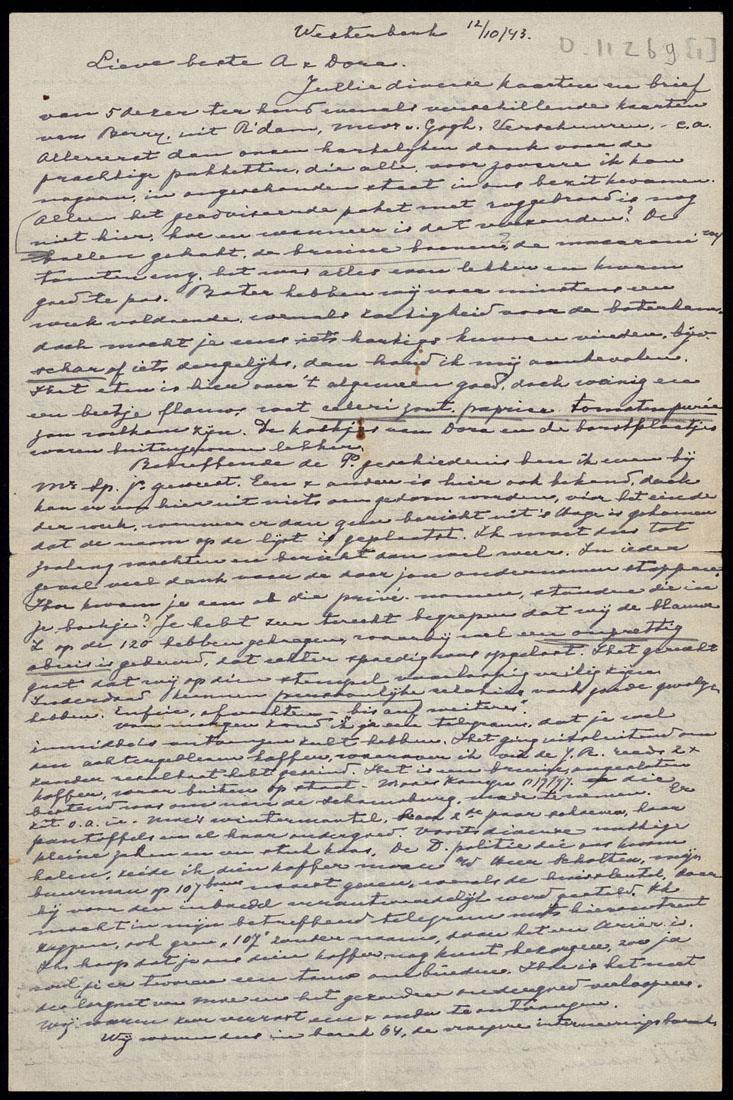 Westerbork 12/10/43.
O. 11269 [1]
Lieve beste A & Dora.
Jullie diverse kaarten en brief
van 5 dezer ter hand evenals verschillende kaarten
van Berry, uit A'dam, mevr. v. Gogh, Verschuuren, - e.a.
Allereerst dan onzen hartelijken dank voor de
prachtige pakketten, die alle, voor zooverre ik kan
nagaan, in ongeschonden staat in ons bezit kwamen.
Alleen het geadviseerde paket met roggebrood is nog
niet hier, hoe en wanneer is det verzonden? De
ballen gehakt, de bruine boonen?, de macaroni
tomaten enz, het was alles even lekker en kwam
goed te pas. Boter hebben wij voor minstens een
week voldoende, evenals zoetigheid voor de boterham,
doch mocht je eens iets hartigs kunnen vinden, bijv.
schar of iets dergelijks, dan houd ik mij aanbevolen.
Het eten is hier over 't algemeen goed, doch weinig en
een beetje flauw, wat celeri zout, paprica tomatenpurée
zou welkom zijn. De koekjes van Dora en de borstplaatjes
waren buitengewoon lekker.
Betreffende de P. geschiedenis ben ik even bij
Mr. Sp. Jr. geweest. Een & ander is hier ook bekend, doch
kan er van hier uit niets aan gedaan worden, vóór het einde
der week, wanneer er dan geen bericht uit 's Hage is gekomen
dat de naam op de lijst is geplaatst. Ik moet dus tot
zoolang wachten en bericht dan wel weer. In ieder
geval veel dank voor de door jou ondernomen stappen.
Hoe kwam je aan al die privé namen, stonden die in
je boekje? Je hebt zeer terecht begrepen dat wij de blauwe
Z op de 120 hebben gekregen, waarbij wel een onprettig
abuis is gebeurd, dat echter spoedig was opgelost. Het gerucht
gaat dat wij op dien stempel voorloopig veilig zijn.
Inderdaad kunnen persoonlijke relaties vaak goede gevolgen
hebben. Enfin, afwachten "bis auf weiteres".
Van morgen zond ik je een telegram, dat je wel
inmiddels ontvangen zult hebben. Het ging uitsluitend om
den achtergebleven koffer, waarover ik via de J.R. reeds 2 x
zonder resultaat heb geseind. Het is een bruine, ongesloten
koffer, waar buiten op staat die
bestemd was om naar de Schouwburg mede te nemen. Er
zit o.a. in Moes wintermantel, 2de paar schoenen, haar
pantoffels en al haar ondergoed. Voorts diverse nuttige
kleine zaken en een stuk kaas. De D. politie die ons kwam
halen, zeide ik dien koffer moest W Heer Scholten, mijn
buurman op 107 boven moest geven, evenals de huissleutel, daar
hij voor den inboedel verantwoordelijk werd gesteld. Ik
mocht in mijn betreffend telegram niets hieromtrent
zeggen, ook geen "107" zonder naam, daar het een Ariër is.
Ik hoop dat je ons dien koffer nog kunt bezorgen, zoo ja
wil je er tevoren een touw ombinden. Hoe is het met
de lorgnet van moe en het gezonden ondergoed verloopen.
Wij waren zeer verrast een & ander te ontvangen.
Wij wonen dus in barak 64, de vroegere interneeringsbarak